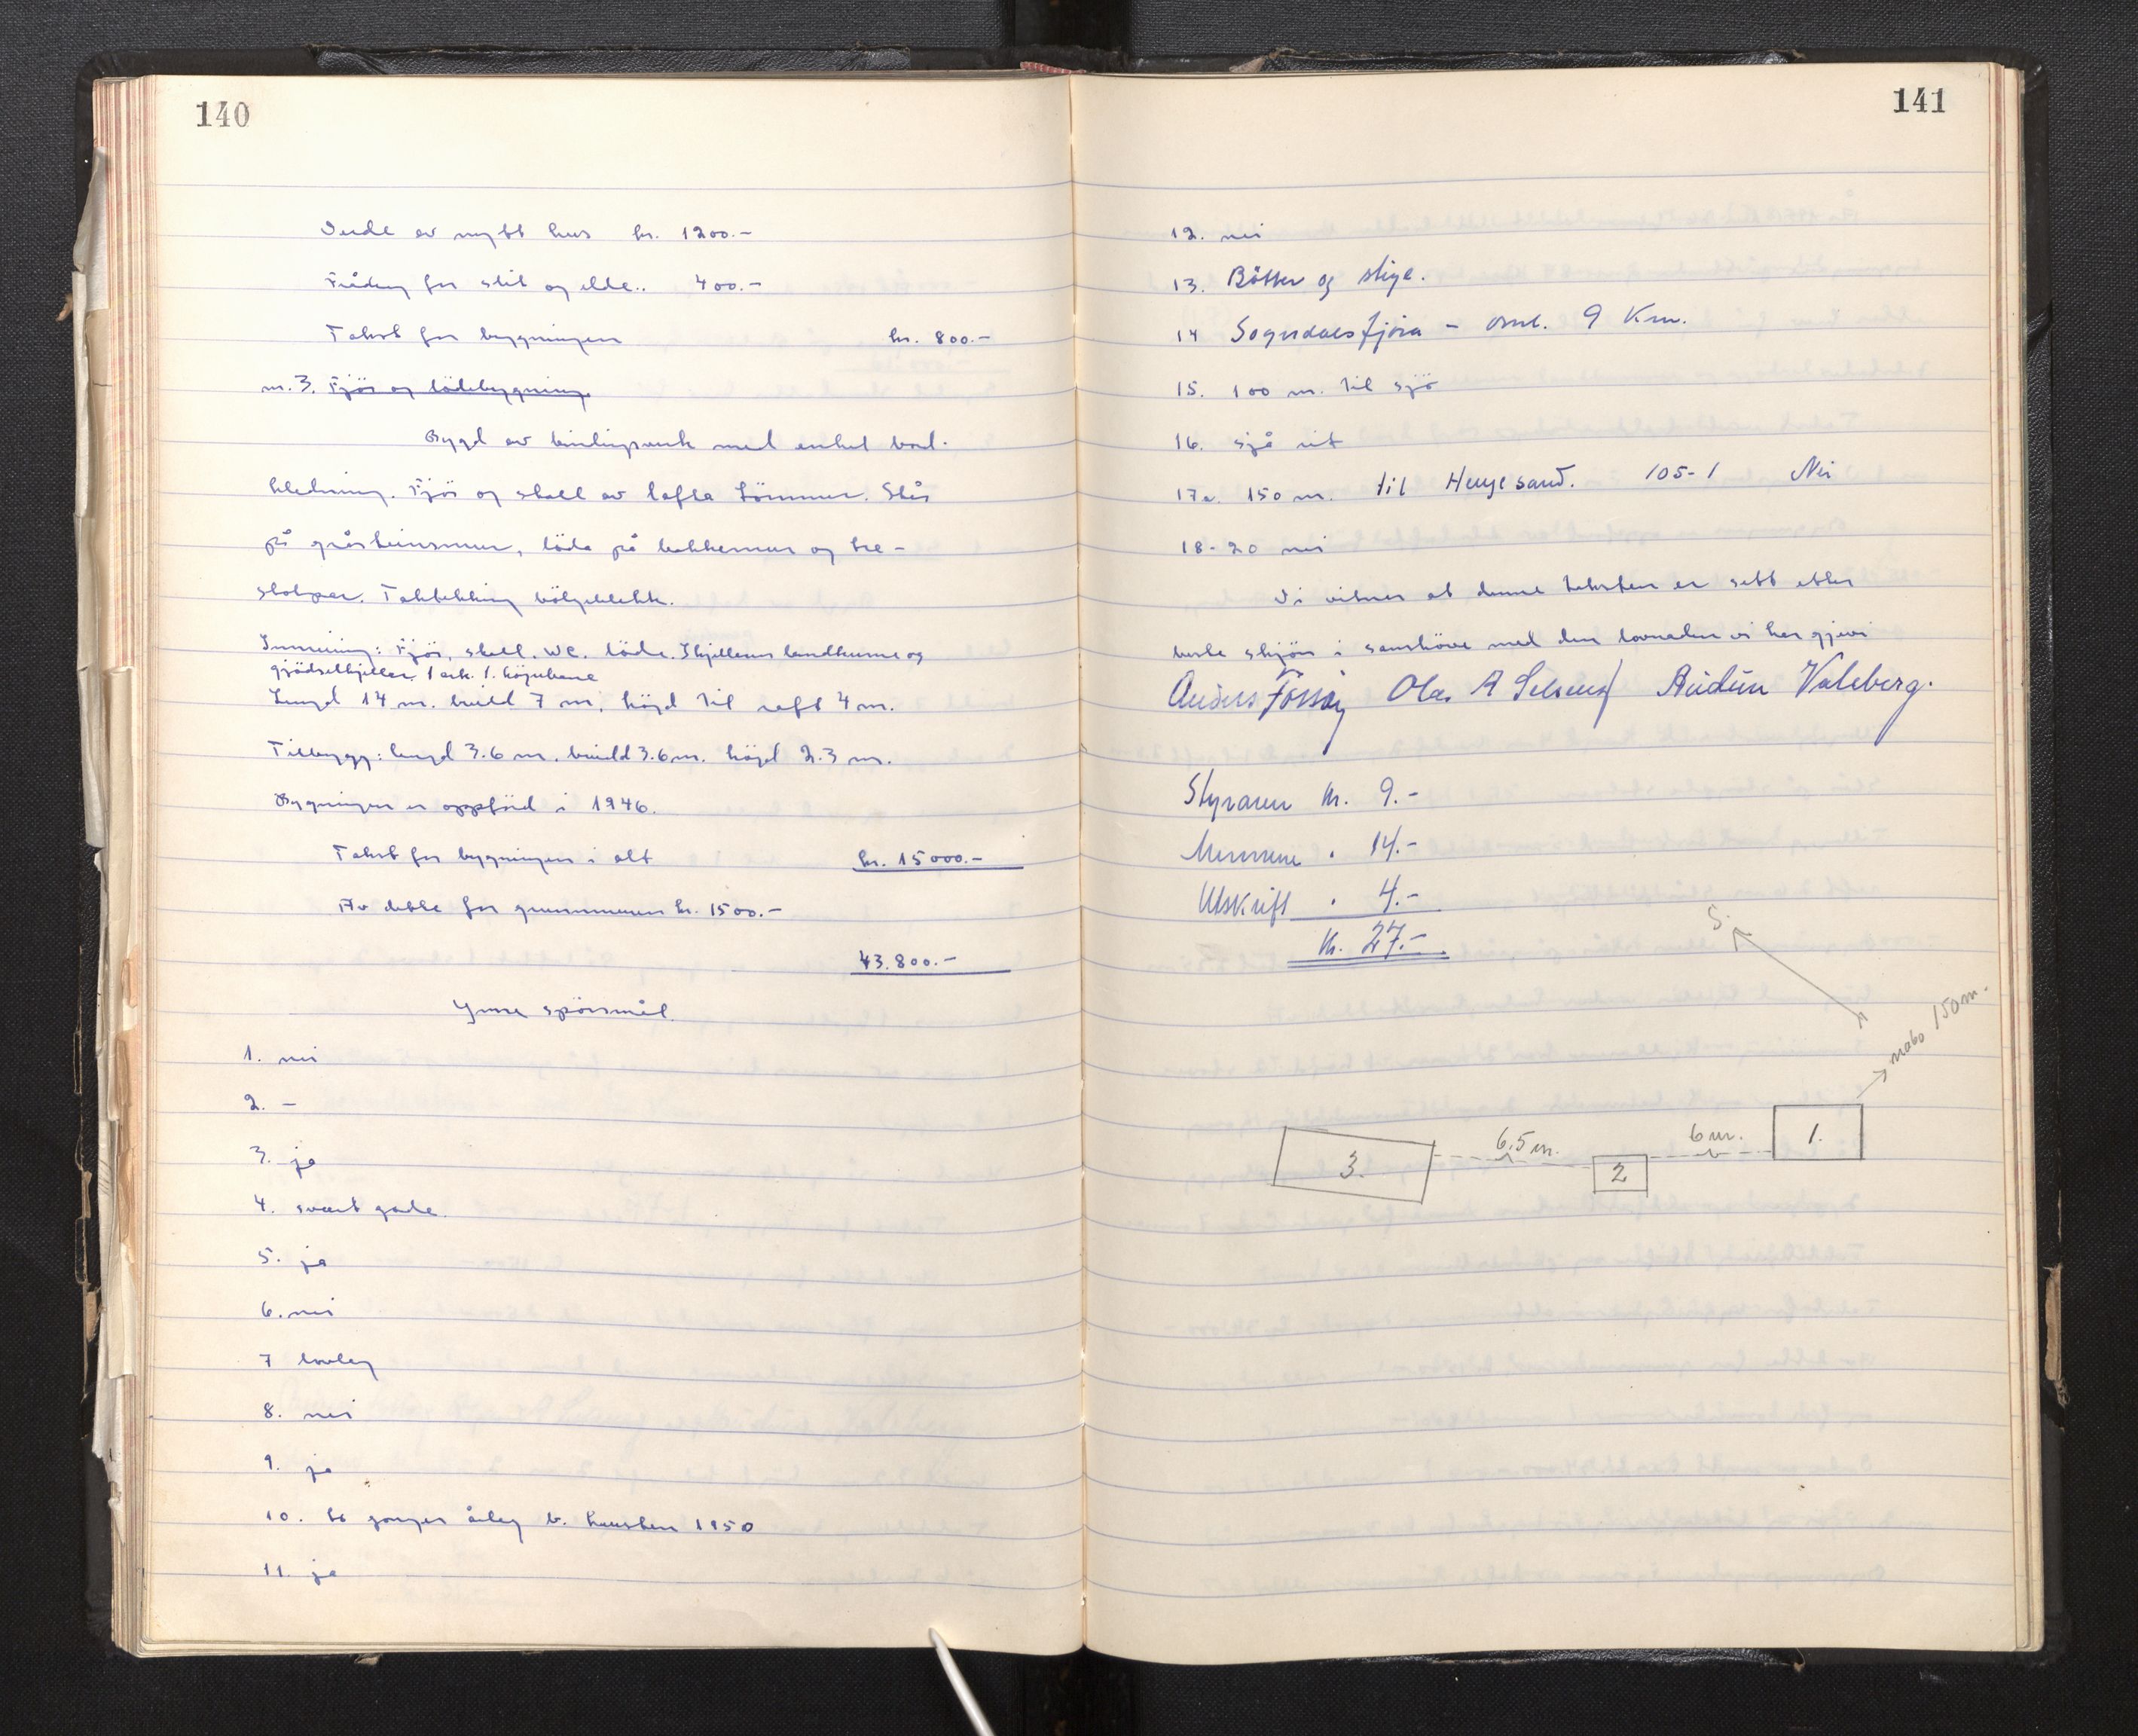 140
av nytt hus kr. 1200.-
Frådrag for slit og elde.. 400.-
Takst for bygningen kr. 800.-
nr. 3. Fjös og lödebygning
Bygd av bindingsverk med enkel bord-
kledning. Fjös og stall av lafta tömmer. Står
på gråsteinsmur, löda på bakkemur og tre-
stolpar. Taktekking bölgeblekk.
Innreiing: Fjös, stall. WC. löde. I kjelleren landkum og
gjödselkjeller. 1 ark. 1. höynbane
Lengd 14 m. breidd 7 m, högd til raft 4 m.
Tilbygg: lengd 3.6 m. breidd 3.6 m. högd 2.3 m.
Bygningen er oppförd i 1946.
Takst for bygningen i alt kr. 15000.-
Av dette for grunnmuren kr. 1500.-
43.800.-
Ymse spörsmål.
1. nei
2. -
3. ja
4. svært gode.
5. ja
6. nei
7 lovleg
8. nei
9. ja
10. to gonger årleg hausten 1950
11. ja
141
12. nei
13. Bötter og stige.
14 Sogndalsfjöra - oml. 9 Km.
15. 100 m. til sjö
16. sjå rit
17a. 150 m. til Haugesand. 105-1 Nei
18-20 nei
Vi vitner at denne taksten er sett etter
beste skjön i samhöve med den lovnaden vi har gjevi
Anders Fossøy Olav A Selseng Audun Valeberg.
Styraren kr. 9.-
Mennene " 14.-
Utskrift " 4.-
kr. 27.-
S.
nabo 150 m.
3. 6.5 m. 2 6 m. 1.